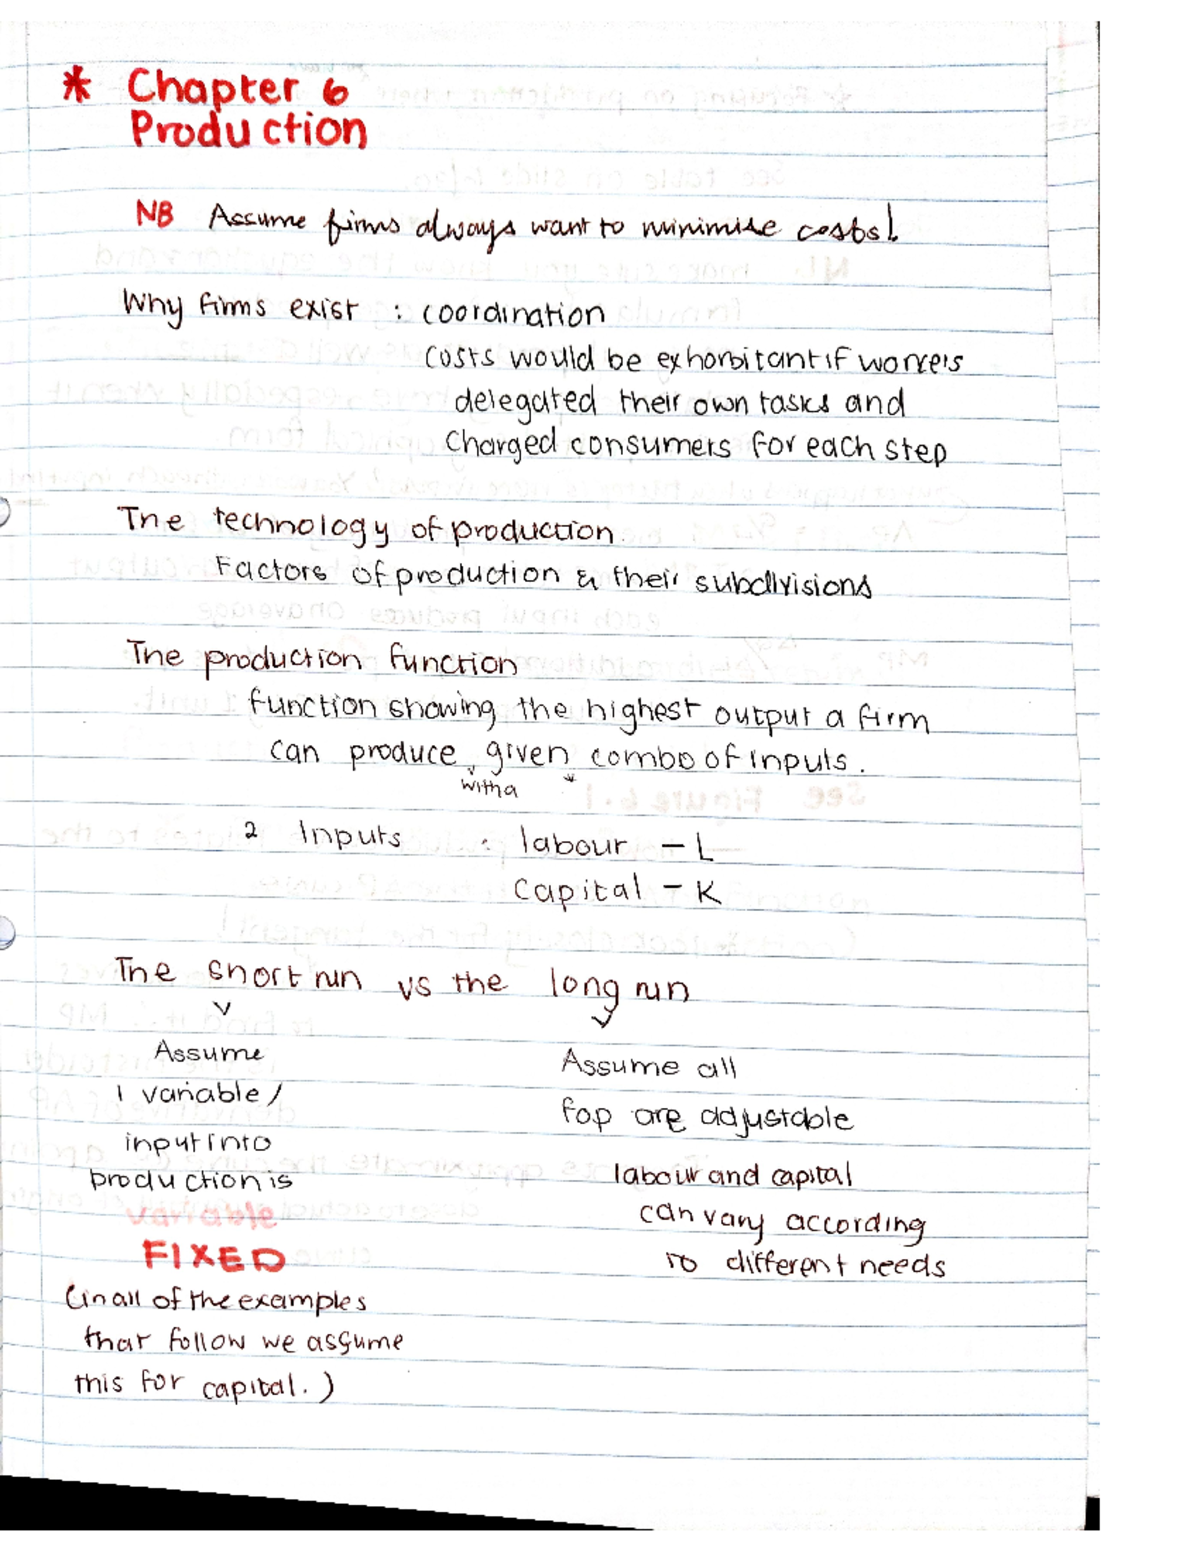 * Chapter 6
Production
NB Assume firms always want to minimise costs!
Why firms exist : coordination
costs would be exhorbitant if workers
delegated their own tasks and
charged consumers for each step
The technology of production
Factors of production & their subdivisions
The production function
function showing the highest output a firm
can produce given combo of inputs.
with a
2 Inputs : labour - L
Capital - K
The short run vs the long run
Assume
1 variable /
input into
production is
variable
FIXED
(in all of the examples
that follow we assume
this for capital.)
Assume all
fop are adjustable
labour and capital
can vary according
to different needs